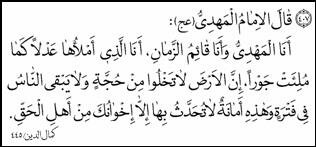 ٤٠٧ قالَ الإمامُ الْمَهدِيُّ (عج):
أَنَا الْمَهْدِيُّ وَأَنَا قائِمُ الزَّمانِ. أَنَا الَّذي أَمْلَأُها عَدْلاً كَما
مُلِئَتْ جَوْراً. إِنَّ الْاَرْضَ لاتَخْلُوا مِنْ حُجَّةٍ وَلايَبْقَى النّاسُ
في فَتْرَةٍ وَهٰذِهِ أَمانَةٌ لاتُحَدِّثْ بِها إِلاّ إِخْوانَكَ مِنْ أَهلِ الْحَقِّ.
كمال الدين/ ٤٤٥